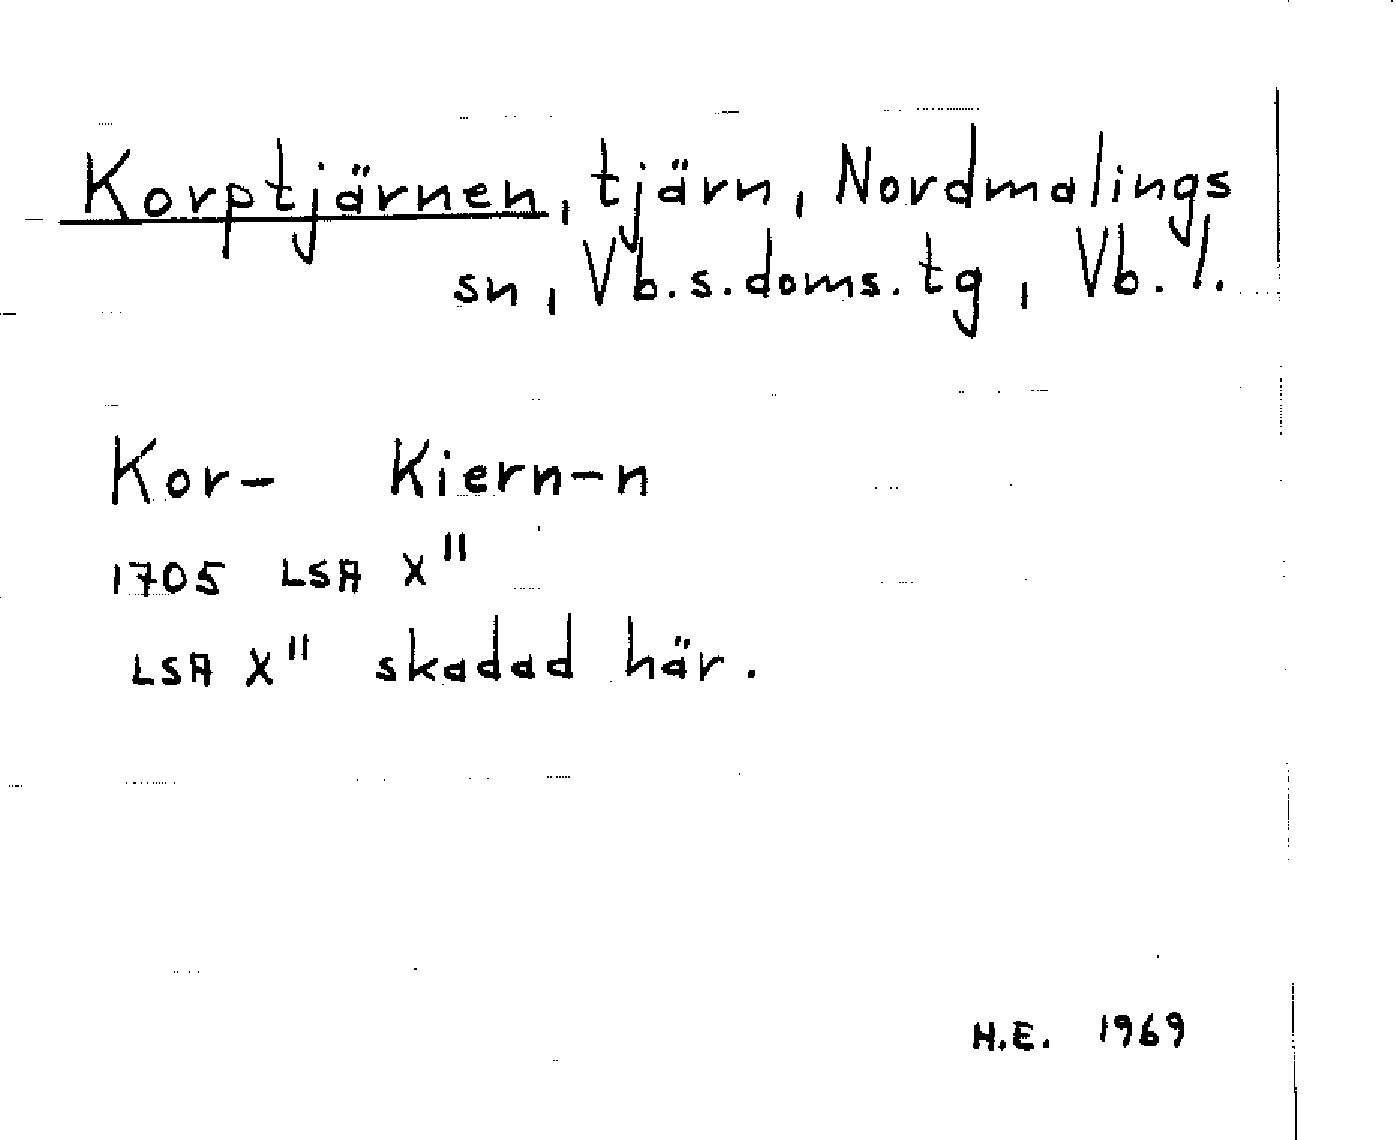 Korptjärnen, tjärn, Nordmalings
sn, Vb.s.doms.tg, Vb.l.
Kor- Kiern-n
1705 LSA X"
LSA X" skadad här.
H.E. 1969